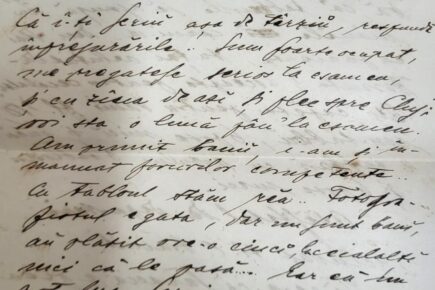 Că îți scriu așa de târziu, respunde
împrejurările.. Sunt foarte ocupat,
me pregatesc serios la esamen,
și cu ziua de azi, și plec spre Cluj
voi sta o lună pân' la esamen.
Am primit banii, e am și în-
manuat forurilor competente.
Cu tabloul stăm rău.. Fotogra-
fistul e gata, dar nu sunt bani,
au plătit vre-o cinci, iar ceialalți
nici că le pasă... Iar că nu